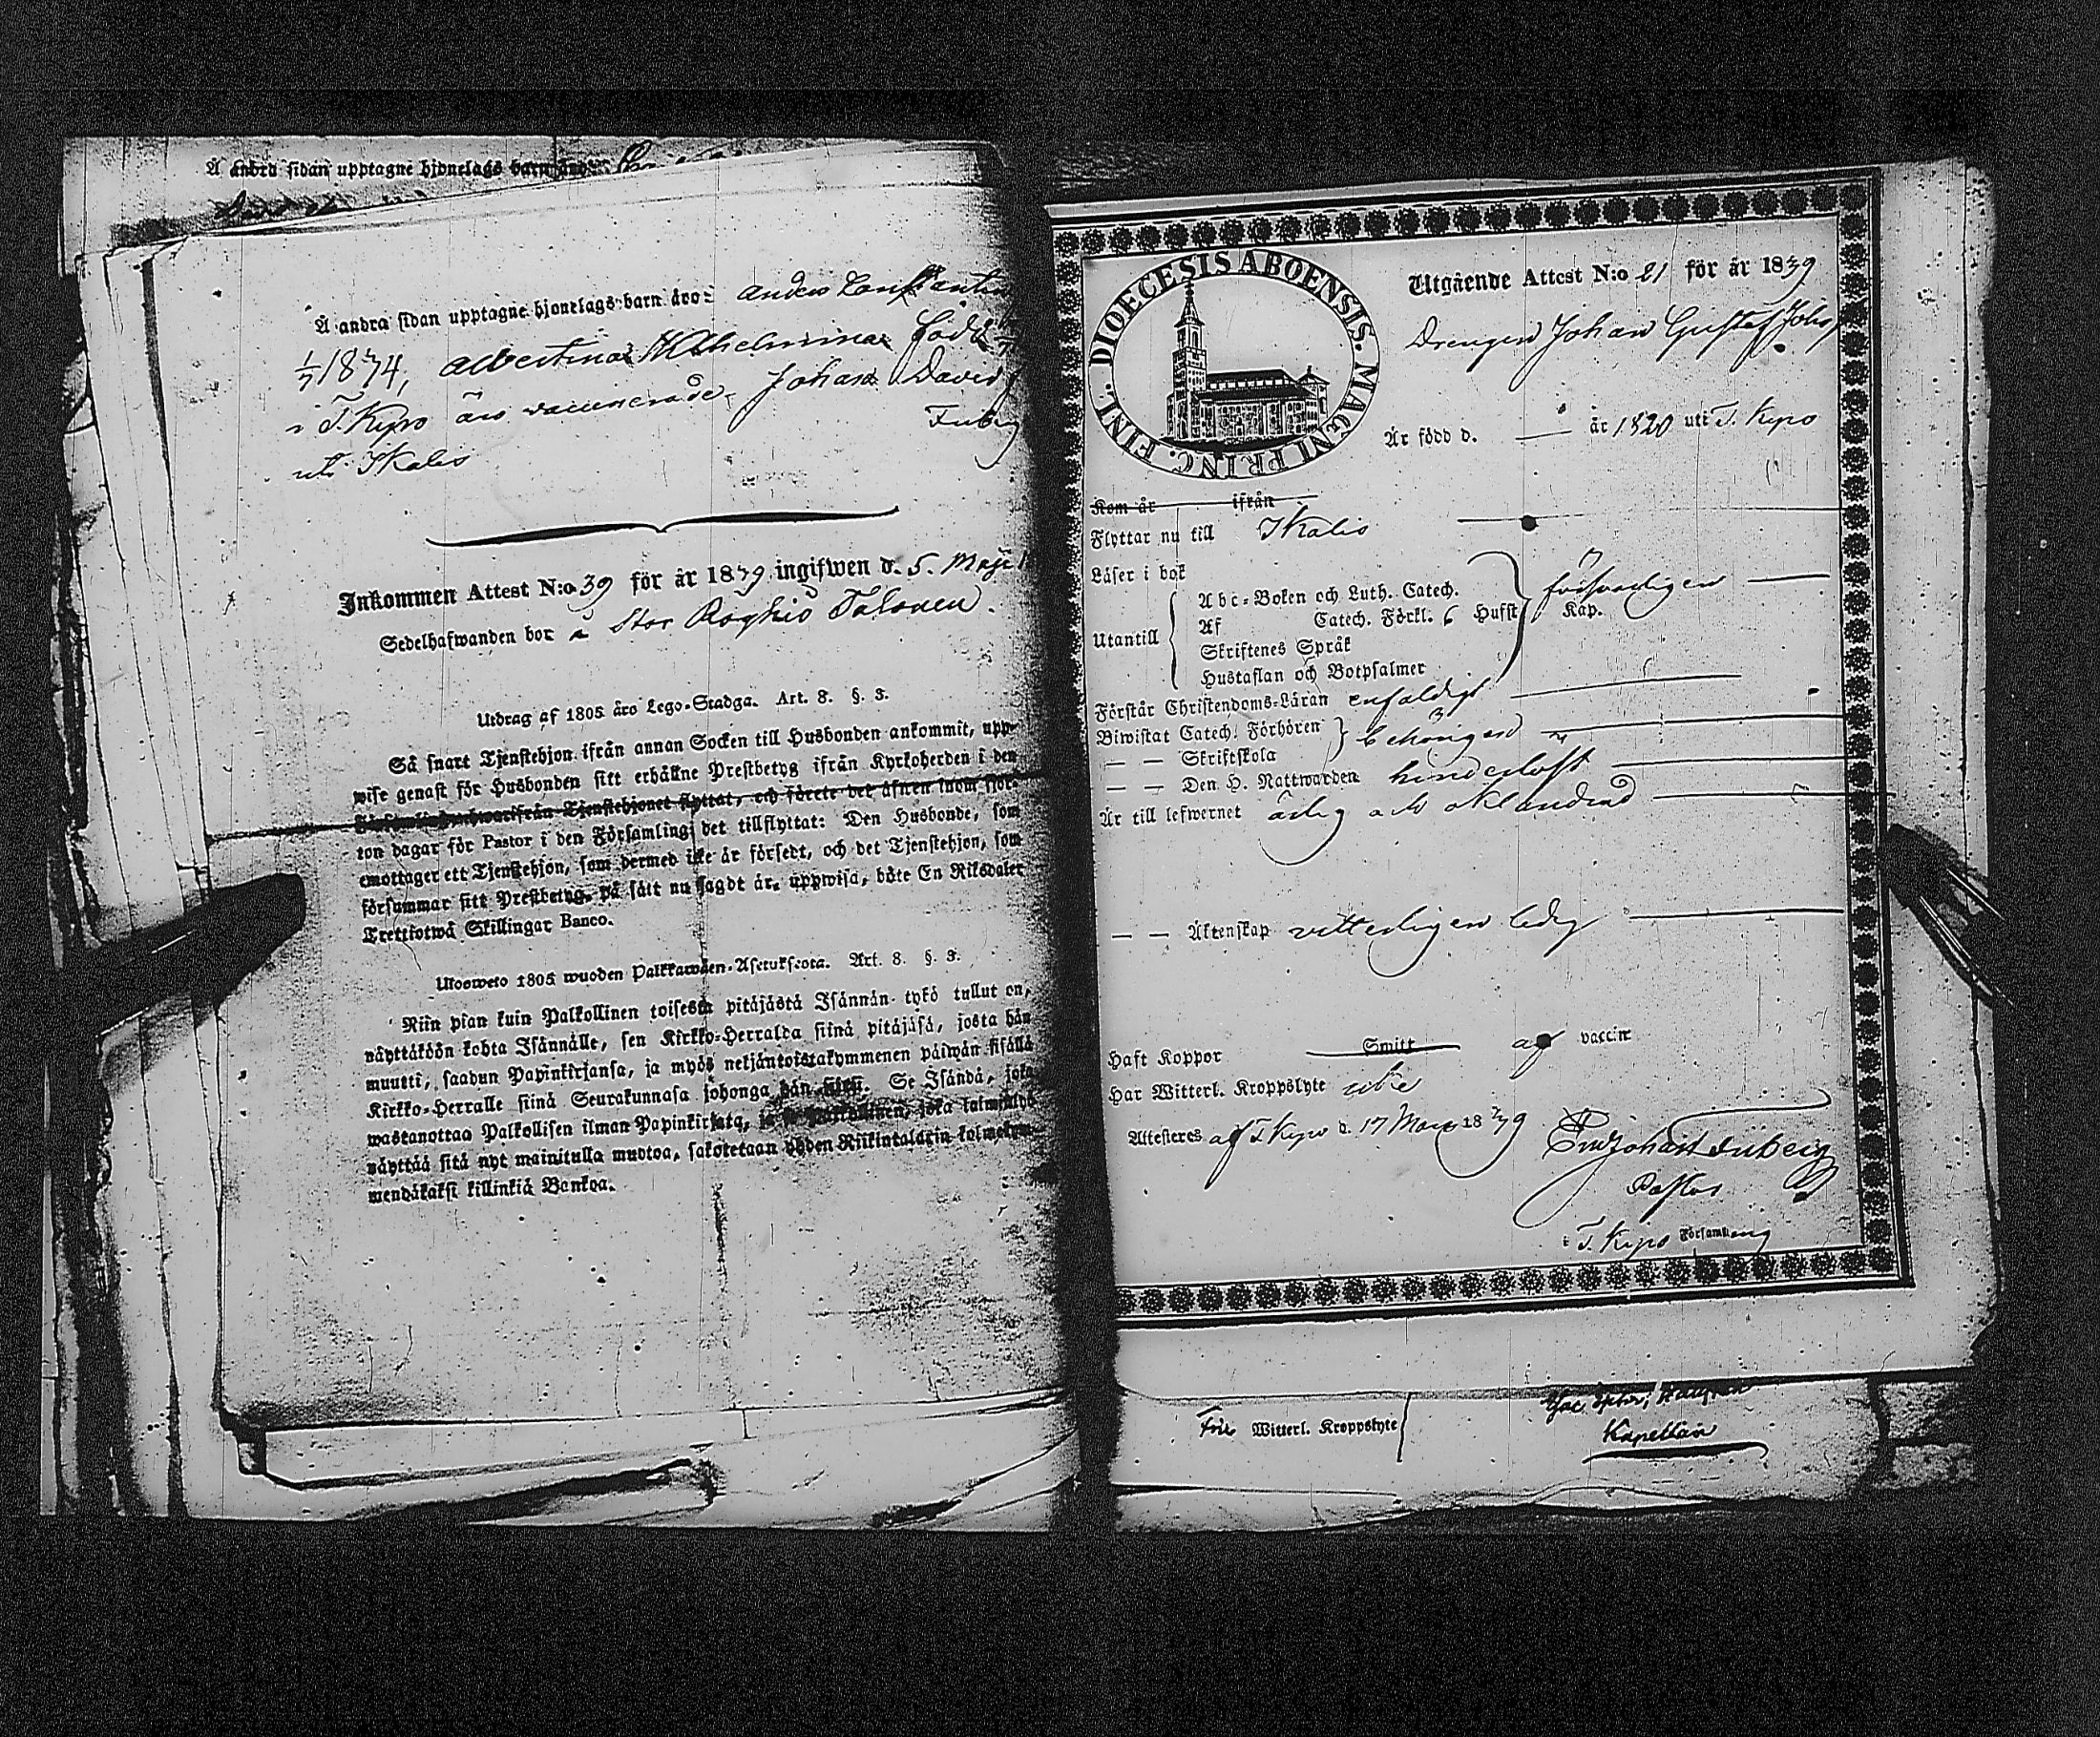 Å andra sidan upptagne hjonelags barn äro:
Å andra sidan upptagne hjonelags barn äro: Anders Constantin
1/7 1834, Albertina Wilhelmina född
i T. Kyro äro vaccinerade. Johan David
uti Ikalis
Inkommen Attest N:o 39 för år 1839 ingifwen d. 5. Maji
Sedelhafwanden bor å Stor Röyhiö Talonen.
Utdrag af 1805 års Lego-Stadga. Art. 8. §. 3.
Så snart Tjenstehjon ifrån annan Socken till Husbonden ankommit, upp-
wise genast för Husbonden sitt erhållne Prestbetyg ifrån Kyrkoherden i den
Församling hwarifrån Tjenstehjonet flyttat, och förete det äfwen inom fjor-
ton dagar för Pastor i den Församling det tillflyttat: Den Husbonde, som
emottager ett Tjenstehjon, som dermed icke är försedt, och det Tjenstehjon, som
försummar sitt Prestbetyg, på sätt nu sagdt är, uppwisa, böte En Riksdaler
Trettiotwå Skillingar Banco.
Ulosweto 1805 wuoden Palkkawäen-Asetuksesta. Art. 8. §. 3.
Niin pian kuin Palkollinen toisesta pitäjästä Isännän tykö tullut on,
näyttäköön kohta Isännälle, sen Kirkko-Herralda siinä pitäjäsä, josta hän
muutti, saadun Papinkirjansa, ja myös neljäntoistakymmenen päiwän sisällä
Kirkko-Herralle siinä Seurakunnasa johonga hän siirsi. Se Isändä, joka
wastanottaa Palkollisen ilman Papinkirjata, ja se Palkollinen, joka laiminlyö
näyttää sitä nyt mainitulla muotoa, sakotetaan yhden Riikintalarin kolmekym-
mendäkaksi killinkiä Bankoa.
DIOECESIS ABOENSIS. MAGNI PRINC. FINL.
Utgående Attest N:o 21 för år 1839
Drengen Johan Gustaf Johs
Är född d. — år 1820 uti T. Kyro
Kom år ifrån
Flyttar nu till Ikalis
Läser i bok
Utantill
Abc-Boken och Luth. Catech.
Af Catech. Förkl. 6 Hufst Kap. försvarligen
Skriftenes Språk
Hustaflan och Botpsalmer
Förstår Christendoms-Läran enfaldigt
Biwistat Catech. Förhören behörigen
— — Skriftskola
— — Den H. Nattwarden hinderlöst
Är till lefwernet ärlig och oklandrad
— — Äktenskap vitterligen ledig
Haft Koppor Smitt af vaccin
Har Witterl. Kroppslyte icke
Attesteres af T. Kyro d. 17 Mars 1839
Pastor
i T. Kyro Församling
Fri Witterl. Kroppslyte
Kapellan